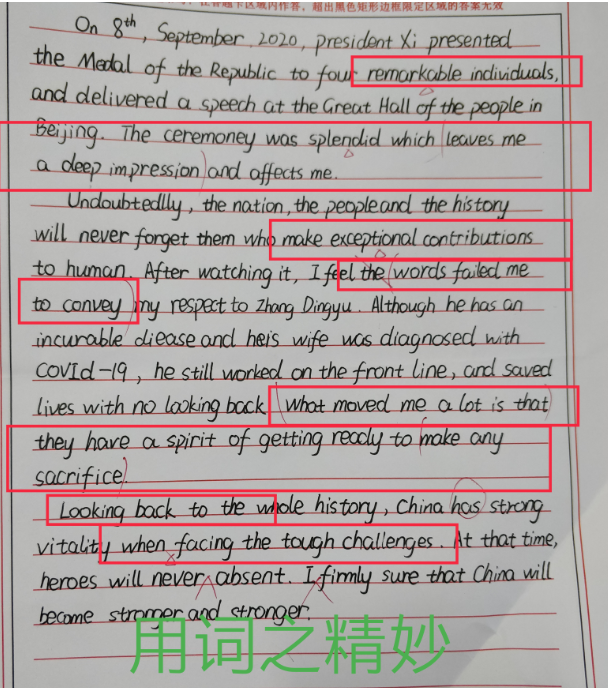 在答题卡区域内作答，超出黑色矩形边框限定区域的答案无效
On 8th, September. 2020, president Xi presented
the Medal of the Republic to four remarkable individuals,
and delivered a speech at the Great Hall of the people in
Beijing. The ceremoney was splendid which leaves me
a deep impression and affects me.
Undoubtedlly, the nation, the people and the history
will never forget them who make exceptional contributions
to human. After watching it, I feel the words failed me
to convey my respect to Zhang Dingyu. Although he has an
incurable diease and heis wife was diagnosed with
COVId-19, he still worked on the front line, and saved
lives with no looking back. What moved me a lot is that
they have a spirit of getting ready to make any
sacrifice.
Looking back to the whole history, China has strong
vitality when facing the tough challenges. At that time,
heroes will never absent. I firmly sure that China will
become stronger and stronger.
用词之精妙